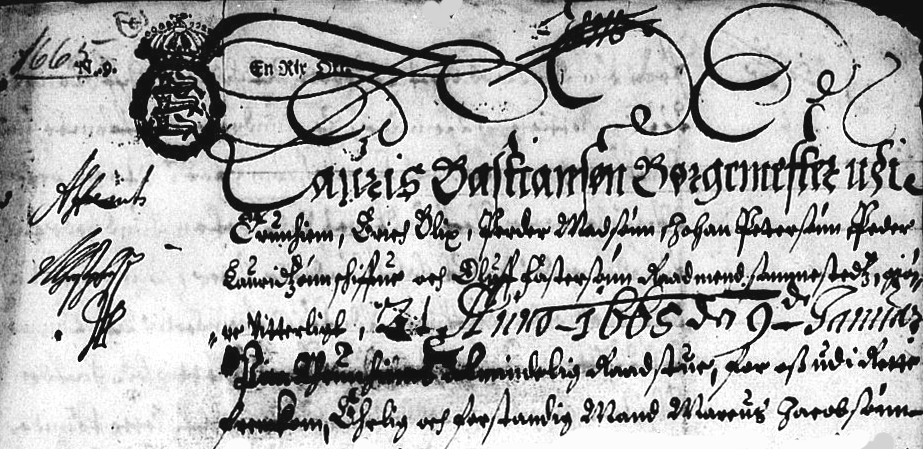 1665
N. 9.
En Rix Ort
Lauris Bastiansen Borgemester udi
Trundhiem, Erich Blix, Peder Madsøun Johan Petersøun Peder
Lauridzøun schiffuer och Oluff Castersøun Raadmend sammestedz, giør
Vitterligt, At Anno 1665 den 9de Januar
Raadstue, for oss udi Rette
fremkom, Ehrlig och forstandig Mand Marcus Jacobsøn